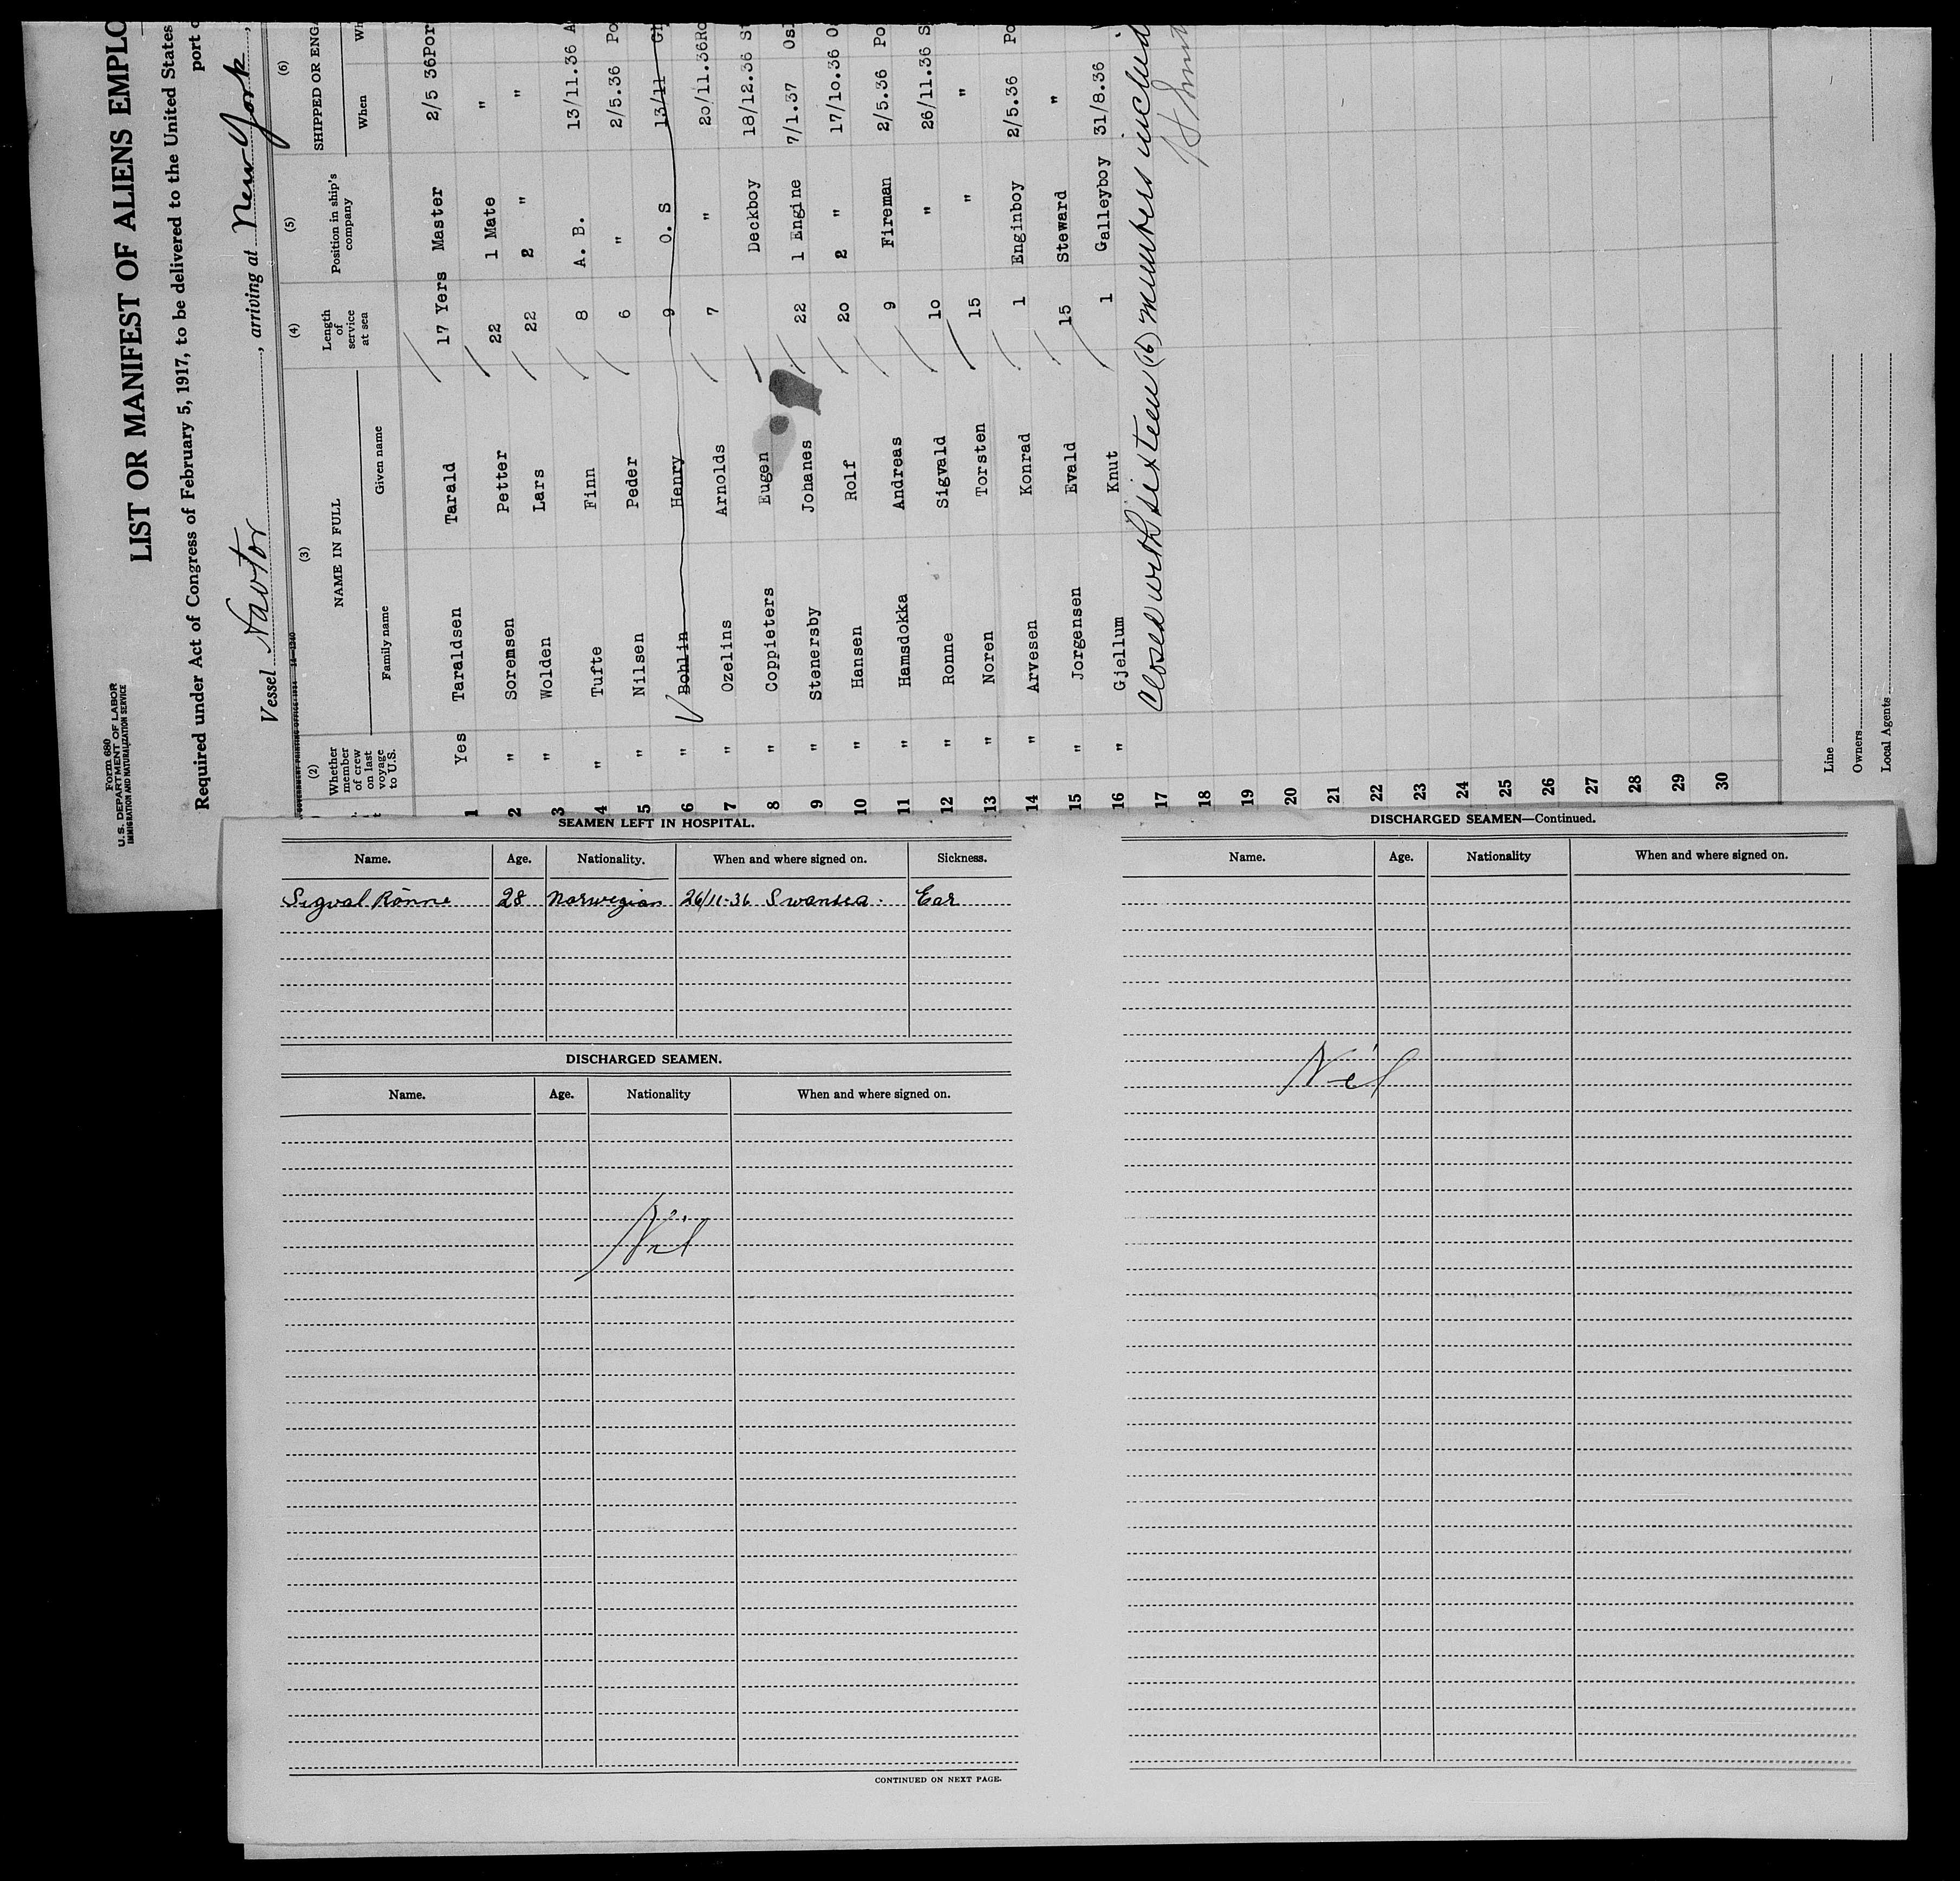 Form 680
U.S. DEPARTMENT OF LABOR
IMMIGRATION AND NATURALIZATION SERVICE
LIST OR MANIFEST OF ALIENS EMPLO
Required under Act of Congress of February 5, 1917, to be delivered to the United States
port
Vessel Navtor, arriving at New York,
(2) (3) (4) (5) (6)
Whether member of crew on last voyage to U.S. NAME IN FULL Length of service at sea Position in ship's company SHIPPED OR ENG
Family name Given name When
1 Yes Taraldsen Tarald 17 Yers Master 2/5 36 Por
2 " Soremsen Petter 22 1 Mate "
3 " Wolden Lars 22 2 " "
4 " Tufte Finn 8 A. B. 13/11.36 A
5 " Nilsen Peder 6 " 2/5.36 Po
6 " Bohlin Henry 9 O. S 13/11
7 " Ozelins Arnolds 7 " 20/11.36 Ro
8 " Coppieters Eugen Deckboy 18/12.36 S
9 " Stenersby Johanes 22 1 Engine 7/1.37 Osl
10 " Hansen Rolf 20 2 " 17/10.36 O
11 " Hamsdokka Andreas 9 Fireman 2/5.36 Po
12 " Ronne Sigvald 10 " 26/11.36 S
13 " Noren Torsten 15 " "
14 " Arvesen Konrad 1 Enginboy 2/5.36 Po
15 " Jorgensen Evald 15 Steward "
16 " Gjellum Knut 1 Galleyboy 31/8.36
17 Closed with sixteen (16) members includ
18
19
20
21
22
23
24
25
26
27
28
29
30
Line
Owners
Local Agents
SEAMEN LEFT IN HOSPITAL.
Name. Age. Nationality. When and where signed on. Sickness.
Sigval Rönne 28 Norwegian 26/11-36 Swansea. Ear
DISCHARGED SEAMEN.
Name. Age. Nationality When and where signed on.
Nil
CONTINUED ON NEXT PAGE.
DISCHARGED SEAMEN—Continued.
Name. Age. Nationality When and where signed on.
Nil